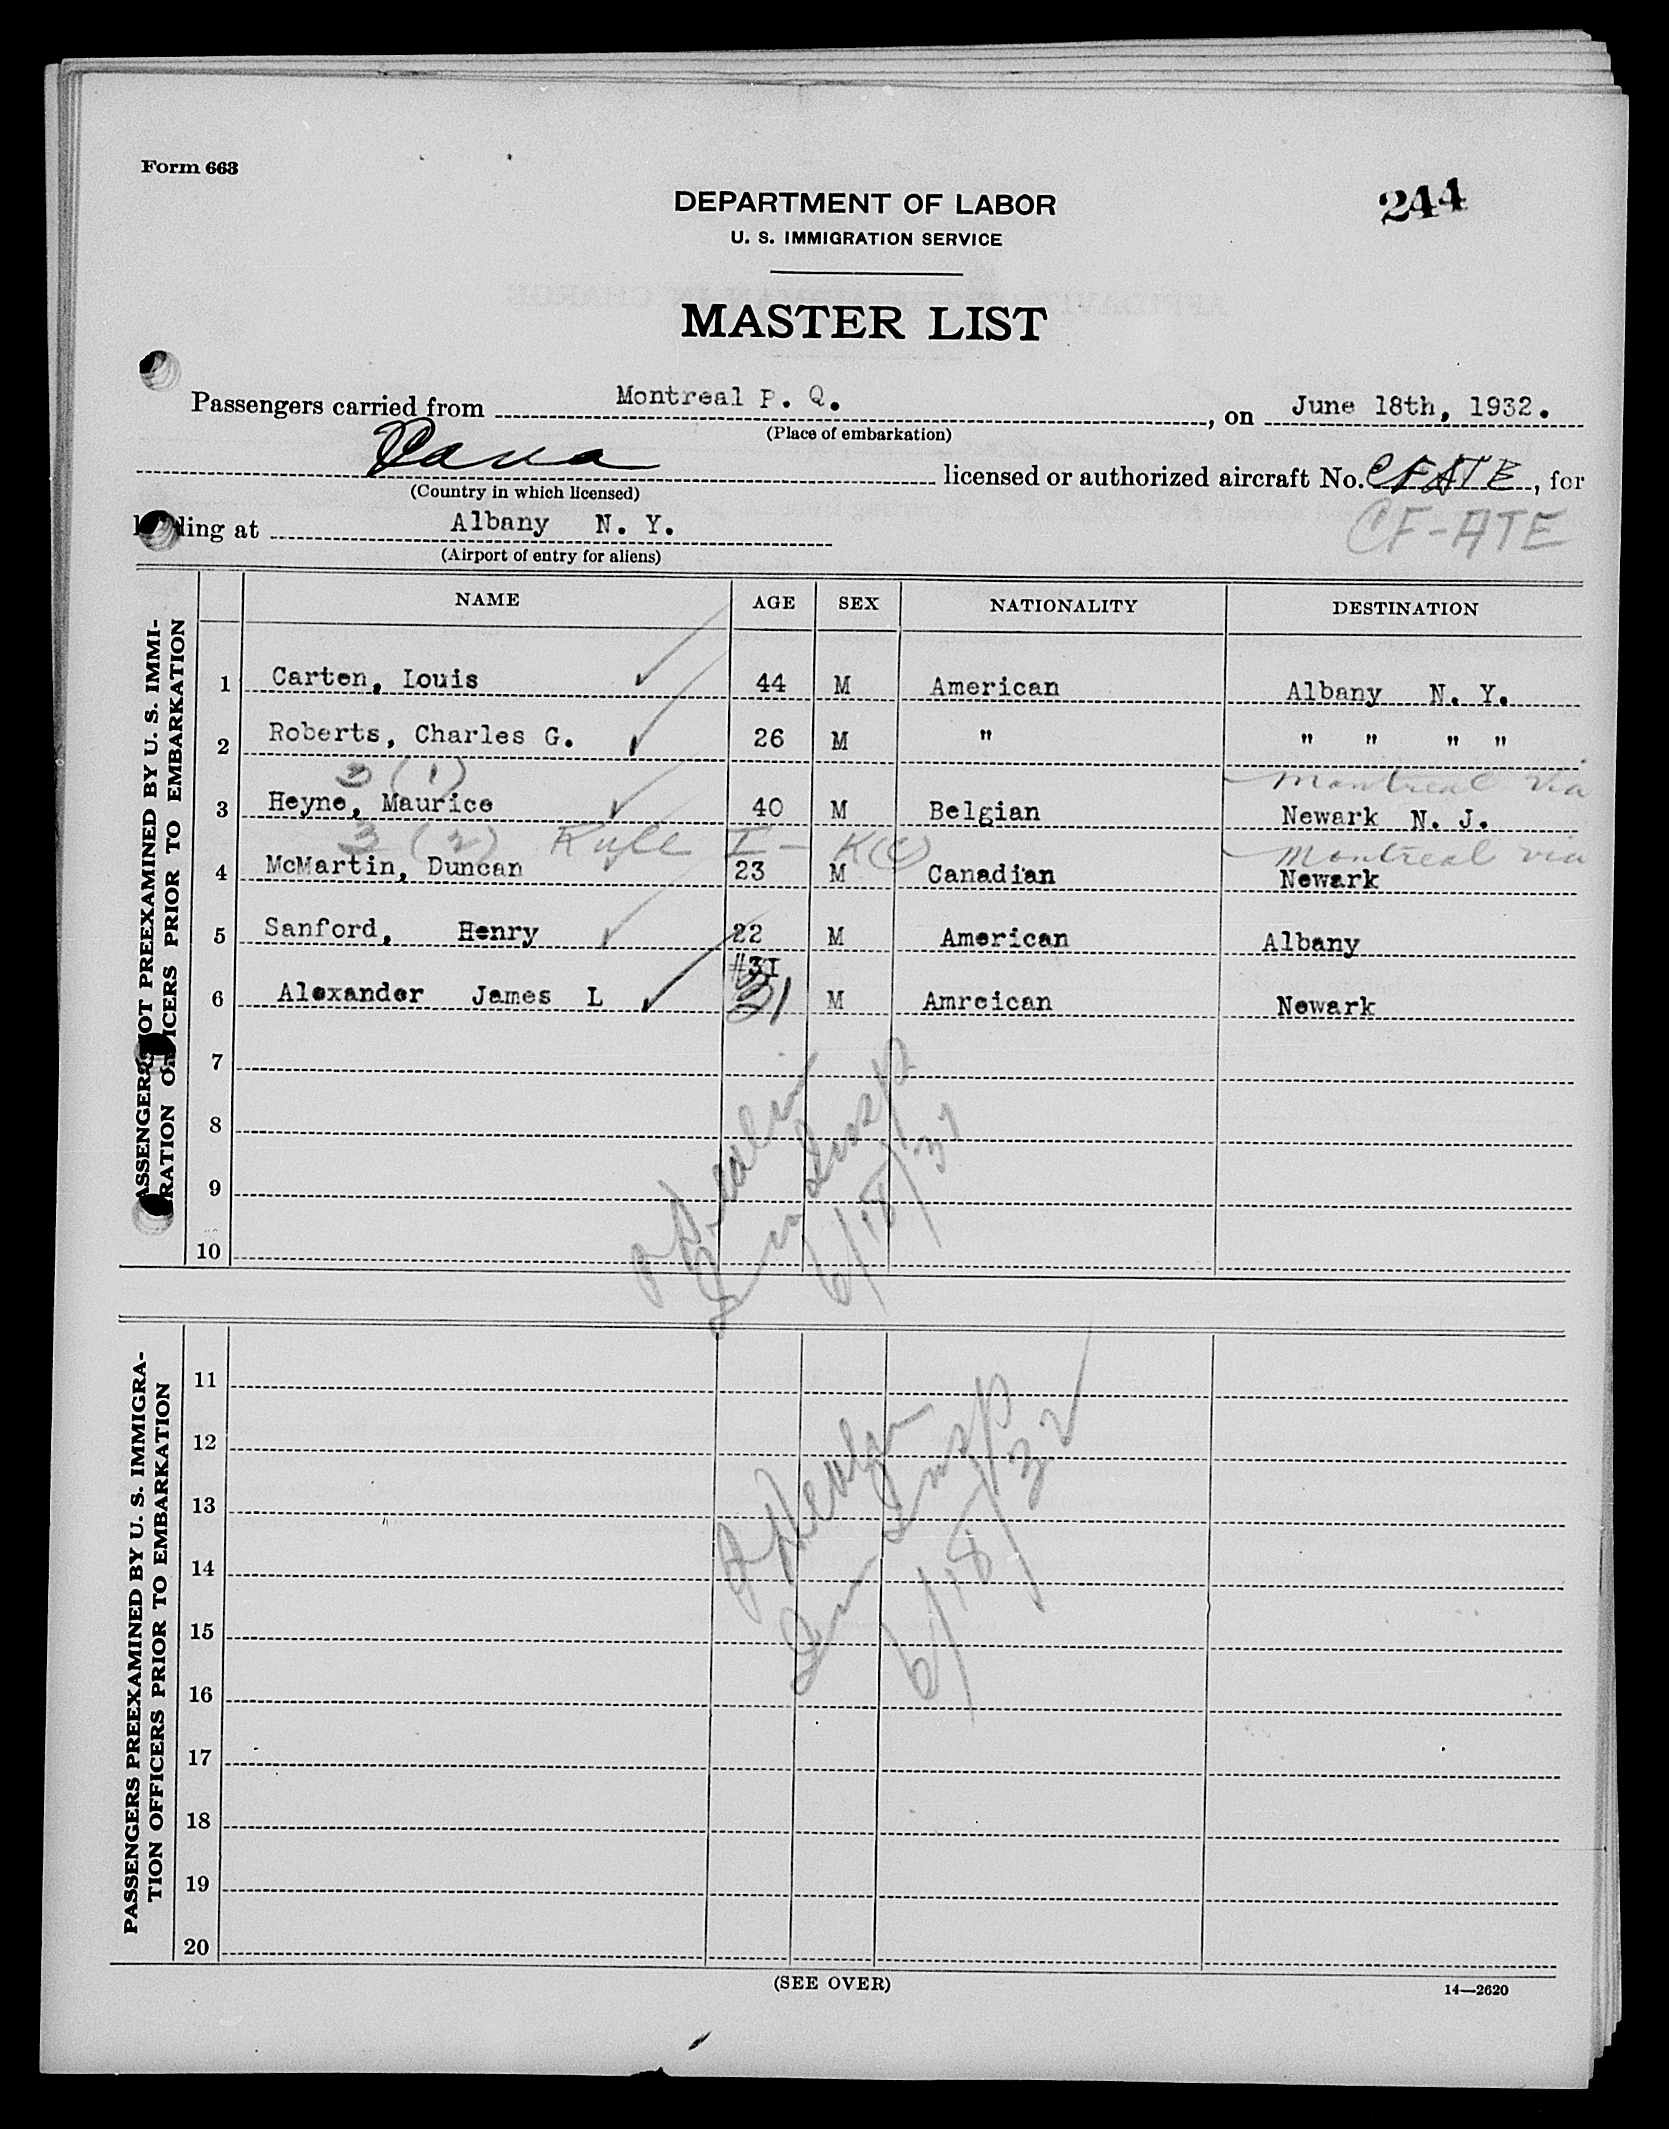 Form 663
DEPARTMENT OF LABOR
U. S. IMMIGRATION SERVICE
244
MASTER LIST
Passengers carried from Montreal P. Q., on June 18th, 1932.
(Place of embarkation)
Cana licensed or authorized aircraft No. CFATE, for
(Country in which licensed)
CF-ATE
ding at Albany N. Y.
(Airport of entry for aliens)
NAME AGE SEX NATIONALITY DESTINATION
ASSENGERS OT PREEXAMINED BY U. S. IMMI-
RATION O ICERS PRIOR TO EMBARKATION
1 Carten, Iouis 44 M American Albany N. Y.
2 Roberts, Charles G. 26 M " " " " "
3 (1) Montreal via
3 Heyne, Maurice 40 M Belgian Newark N. J.
3 (2) Rule I - K(6) Montreal via
4 McMartin, Duncan 23 M Canadian Newark
5 Sanford, Henry 22 M American Albany
#31
6 Alexander James L 31 M Amreican Newark
7
8
9
10
Insp
6/18/31
PASSENGERS PREEXAMINED BY U. S. IMMIGRA-
TION OFFICERS PRIOR TO EMBARKATION
11
12
13
14
15
16
17
18
19
20
Insp
6/18/32
(SEE OVER)
14—2620